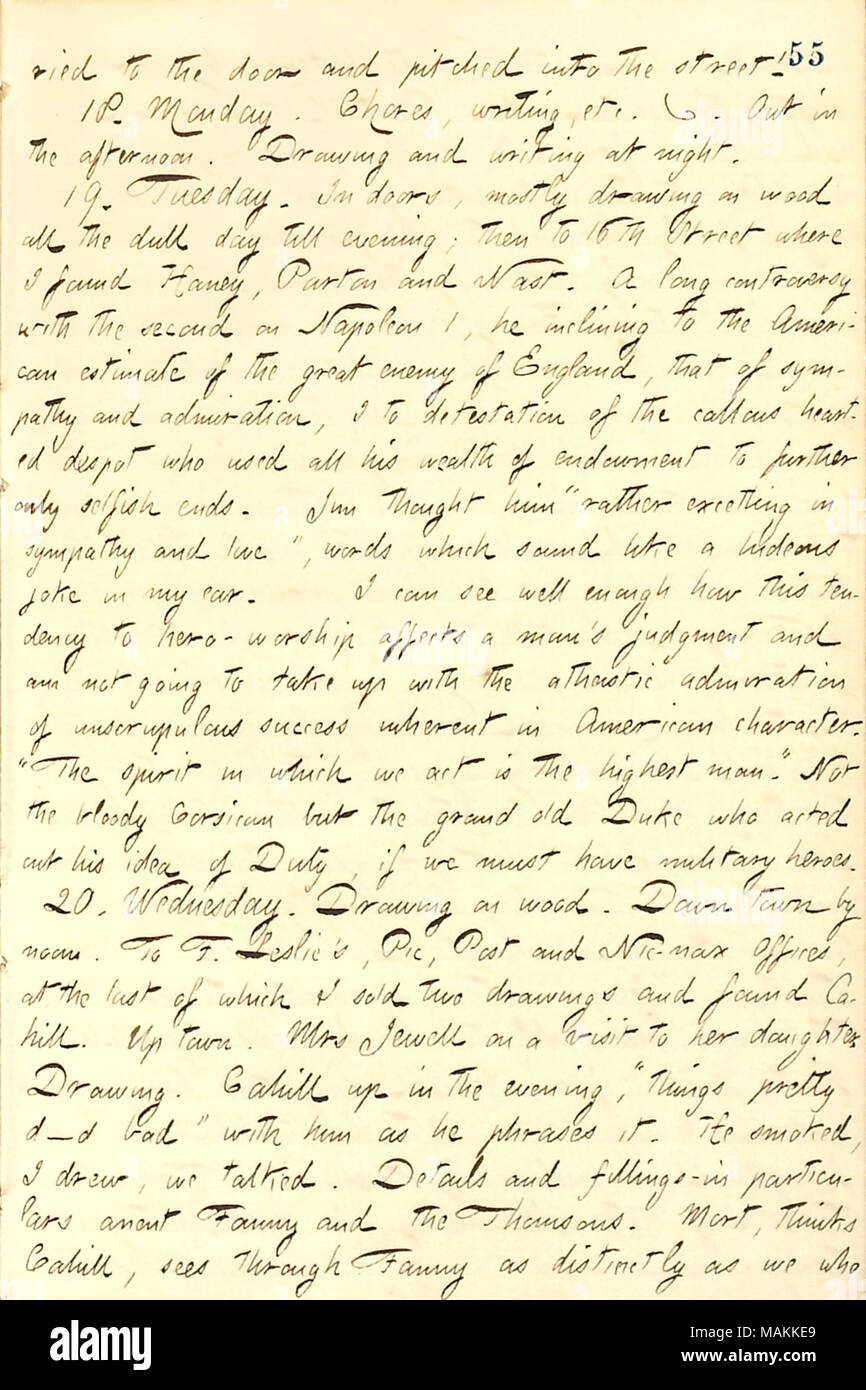 55
ried to the door and pitched into the street!
18. Monday. Chores, writing, etc. Out in
the afternoon. Drawing and writing at night.
19. Tuesday. In doors, mostly drawing on wood
all the dull day till evening; then to 16th Street where
I found Haney, Parton and Nast. A long controversy
with the second on Napoleon 1, he inclining to the Ameri-
can estimate of the great enemy of England, that of sym-
pathy and admiration, I to detestation of the callous heart-
ed despot who used all his wealth of endowment to further
only selfish ends. Jim thought him "rather excelling in
sympathy and love", words which sound like a hideous
joke in my ear. I can see well enough how this ten-
dency to hero-worship affects a man's judgment and
am not going to take up with the atheistic admiration
of unscrupulous success inherent in American character.
"The spirit in which we act is the highest man." Not
the bloody Corsican but the grand old Duke who acted
out his idea of Duty, if we must have military heroes.
20. Wednesday. Drawing on wood. Down town by
noon. To F. Leslie's, Pic, Post and Nic-nax Offices,
at the last of which I sold two drawings and found Ca-
hill. Up town. Mrs Jewell on a visit to her daughter.
Drawing. Cahill up in the evening, "things pretty
d—d bad" with him as he phrases it. He smoked,
I drew, we talked. Details and fillings-in particu-
lars anent Fanny and the Thomsons. Mort, thinks
Cahill, sees through Fanny as distinctly as we who
alamy
Image ID: MAKKE9
www.alamy.com